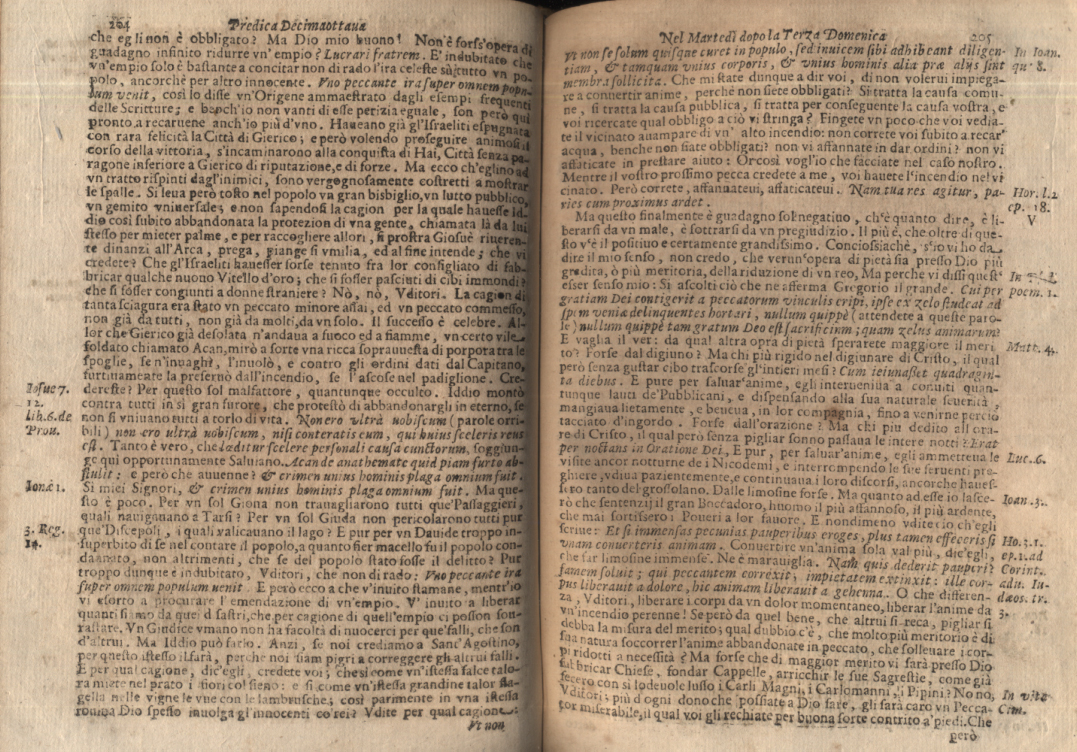 204
Predica Decimaottaua
che egli non è obbligato? Ma Dio mio buono! Non'è fors'opera di
guadagno infinito ridurre vn'empio? Lucrari fratrem. E' indubitato che
vn'empio solo è bastante a concitar non di rado l'ira celeste sù tutto vn po-
polo, ancorchè per altro innocente. Vno peccante ira super omnem popu-
lum venit, così lo disse vn'Origene ammaestrato dagli esempi frequenti
delle Scritture; e bench'io non vanti di esse perizia eguale, son però qui
pronto a recaruene anch'io più d'vno. Haueano già gl'Israeliti espugnata
con rara felicità la Città di Gierico; e però volendo proseguire animosi il
corso della vittoria, s'incaminarono alla conquista di Hai, Città senza pa-
ragone inferiore a Gierico di riputazione, e di forze. Ma ecco ch'eglino ad
vn tratto rispinti dagl'inimici, sono vergognosamente costretti a mostrar
le spalle. Si leua però tosto nel popolo vn gran bisbiglio, vn lutto pubblico,
vn gemito vniuersale; e non sapendosi la cagion per la quale hauesse Id-
dio così subito abbandonata la protezion di vna gente, chiamata là da lui
stesso per mieter palme, e per raccogliere allori, si prostra Giosuè riueren-
te dinanzi all'Arca, prega, piange si vmilia, ed al fine intende; che vi
credete? Che gl'Israeliti hauesser forse tenuto fra lor consigliato di fab-
bricar qualche nuouo Vitello d'oro; che si fosser pasciuti di cibi immondi?
che si fosser congiunti a donne straniere? Nò, nò, Vditori. La cagion di
tanta sciagura era stato vn peccato minore assai, ed vn peccato commesso,
non già da tutti, non già da molti, da vn solo. Il successo è celebre. Al-
lor che Gierico già desolata n'andaua a fuoco ed a fiamme, vn certo vile
soldato chiamato Acan, mirò a sorte vna ricca soprauuesta di porpora tra le
spoglie, se n'inuaghì, l'inuolò, e contro gli ordini dati dal Capitano,
furtiuamente la preseruò dall'incendio, se l'ascose nel padiglione. Cre-
dereste? Per questo sol malfattore, quantunque occulto, Iddio montò
contra tutti in sì gran furore, che protestò di abbandonargli in eterno, se
non si vniuano tutti a torlo di vita. Non ero ultrà uobiscum (parole orri-
bili) non ero ultrà uobiscum, nisi conteratis eum, qui huius sceleris reus
est. Tanto è vero, che læditur scelere personali causa cunctorum, soggiun-
ge qui opportunamente Saluiano. Acan de anathemate quidpiam furto ab-
stulit: e però che auuenne? & crimen unius hominis plaga omnium fuit.
Sì miei Signori, & crimen unius hominis plaga omnium fuit. Ma que-
sto è poco. Per vn sol Giona non trauagliarono tutti que'Passaggieri,
quali nauigauano a Tarsi? Per vn sol Giuda non pericolarono tutti pur
que'Discepoli, i quali valicauano il lago? E pur per vn Dauide troppo in-
superbito di se nel contare il popolo, a quanto fier macello fu il popolo con-
dannato, non altrimenti, che se del popolo stato fosse il delitto? Pur
troppo dunque è indubitato, Vditori, che non di rado: Vno peccante ira
super omnem populum uenit. E però ecco a che v'inuito stamane, mentr'io
vi esorto a procurare l'emendazione di vn'empio. V'inuito a liberar
quanti siamo da que' disastri, che per cagione di quell'empio ci posson sou-
rastare. Vn Giudice vmano non ha facoltà di nuocerci per que'falli, che son
d'altrui. Ma Iddio può farlo. Anzi, se noi crediamo a Sant'Agostino,
per questo istesso il farà, perche noi siam pigri a correggere gli altrui falli.
E per qual cagione, dic'egli, credete voi; che sì come vn'istessa falce talo-
ra miete nel prato i fiori col fieno: e sì come vn'istessa grandine talor fla-
gella nelle vigne le vue con le lambrusche; così parimente in vna istessa
rouina Dio spesso inuolga gl'innocenti co'rei? Vdite per qual cagione:
Vt non
Iosue 7.
12.
lib. 6. de
Prou.
Ionæ 1.
3. Reg.
14.
Nel Martedì dopo la Terza Domenica
205
vt non se solum quisque curet in populo, sed inuicem sibi adhibeant diligen-
tiam, & tamquam vnius corporis, & vnius hominis alia præ alijs sint
membra sollicita. Che mi state dunque a dir voi, di non volerui impiega-
re a conuertir anime, perchè non siete obbligati? Si tratta la causa comu-
ne, si tratta la causa pubblica, si tratta per conseguente la causa vostra, e
voi ricercate qual obbligo a ciò vi stringa? Fingete vn poco che voi vedia-
te il vicinato auampare di vn' alto incendio: non correte voi subito a recar'
acqua, benche non siate obbligati? non vi affannate in dar ordini? non vi
affaticate in prestare aiuto? Or così vogl'io che facciate nel caso nostro.
Mentre il vostro prossimo pecca credete a me, voi hauete l'incendio nel vi
cinato. Però correte, affannateui, affaticateui. Nam tua res agitur, pa-
ries cum proximus ardet.
Ma questo finalmente è guadagno sol negatiuo, ch'è quanto dire, è li-
berarsi da vn male, è sottrarsi da vn pregiudizio. Il più è, che oltre di que-
sto v'è il positiuo e certamente grandissimo. Conciossiachè, s'io vi ho da
dire il mio senso, non credo, che verun'opera di pietà sia presso Dio più
gradita, ò più meritoria, della riduzione di vn reo, Ma perche vi dissi quest'
esser senso mio: Si ascolti ciò che ne afferma Gregorio il grande. Cui per
gratiam Dei contigerit a peccatorum vinculis eripi, ipse ex zelo studeat ad
spem veniæ delinquentes hortari, nullum quippè (attendete a queste paro-
le) nullum quippè tam gratum Deo est sacrificium; quam zelus animarum?
E vaglia il ver: da qual altra opra di pietà sperarete maggiore il meri
to? Forse dal digiuno? Ma chi più rigido nel digiunare di Cristo, il qual
però senza gustar cibo trascorse gl'intieri mesi? Cum ieiunasset quadragin-
ta diebus. E pure per saluar'anime, egli interueniua a conuiti quan-
tunque lauti de'Pubblicani, e dispensando alla sua naturale seuerità,
mangiaua lietamente, e beueua, in lor compagnia, fino a venirne perciò
tacciato d'ingordo. Forse dall'orazione? Ma chi più dedito all'ora-
re di Cristo, il qual però senza pigliar sonno passaua le intere notti? Erat
per noctans in Oratione Dei. E pur, per saluar'anime, egli ammetteua le
visite ancor notturne de i Nicodemi, e interrompendo le sue feruenti pre-
ghiere, vdiua pazientemente, e continuaua i loro discorsi, ancorche haues-
sero tanto del grossolano. Dalle limosine forse. Ma quanto ad esse io lasce-
rò che sentenzij il gran Boccadoro, huomo il più affannoso, il più ardente,
che mai sortissero i Poueri a lor fauore. E nondimeno vdite ciò ch'egli
scriue: Et si immensas pecunias pauperibus eroges, plus tamen effeceris si
vnam conuerteris animam. Conuertire vn'anima sola val più, dic'egli,
che far limosine immense. Nè è marauiglia. Nam quis dederit pauperi?
famem soluit; qui peccantem correxit, impietatem extinxit: ille cor-
pus liberauit a dolore, hic animam liberauit a gehenna. O che differen-
za, Vditori, liberare i corpi da vn dolor momentaneo, liberar l'anime da
vn incendio perenne! Se però da quel bene, che altrui si reca, pigliar si
debba la misura del merito; qual dubbio c'è, che molto più meritorio è di
sua natura soccorrer l'anime abbandonate in peccato, che solleuare i cor-
pi ridotti a necessità? Ma forse che di maggior merito vi sarà presso Dio
fabbricar Chiese, fondar Cappelle, arricchir le sue Sagrestie, come già
fecero con sì lodeuole lusso i Carli Magni, i Carlomanni, i Pipini? No no,
Vditori; più d'ogni dono che possiate a Dio fare, gli sarà caro vn Pecca-
tor miserabile, il qual voi gli rechiate per buona sorte contrito a'piedi. Che
però
In Ioan.
qu. 8.
Hor. l. 2
ep. 18.
V
poem. 1.
Matt. 4.
Luc. 6.
Ioan. 3.
Ho. 3. 1.
ep. 1. ad
Corint.
adu. Iu-
dæos. tr.
3.
In vita